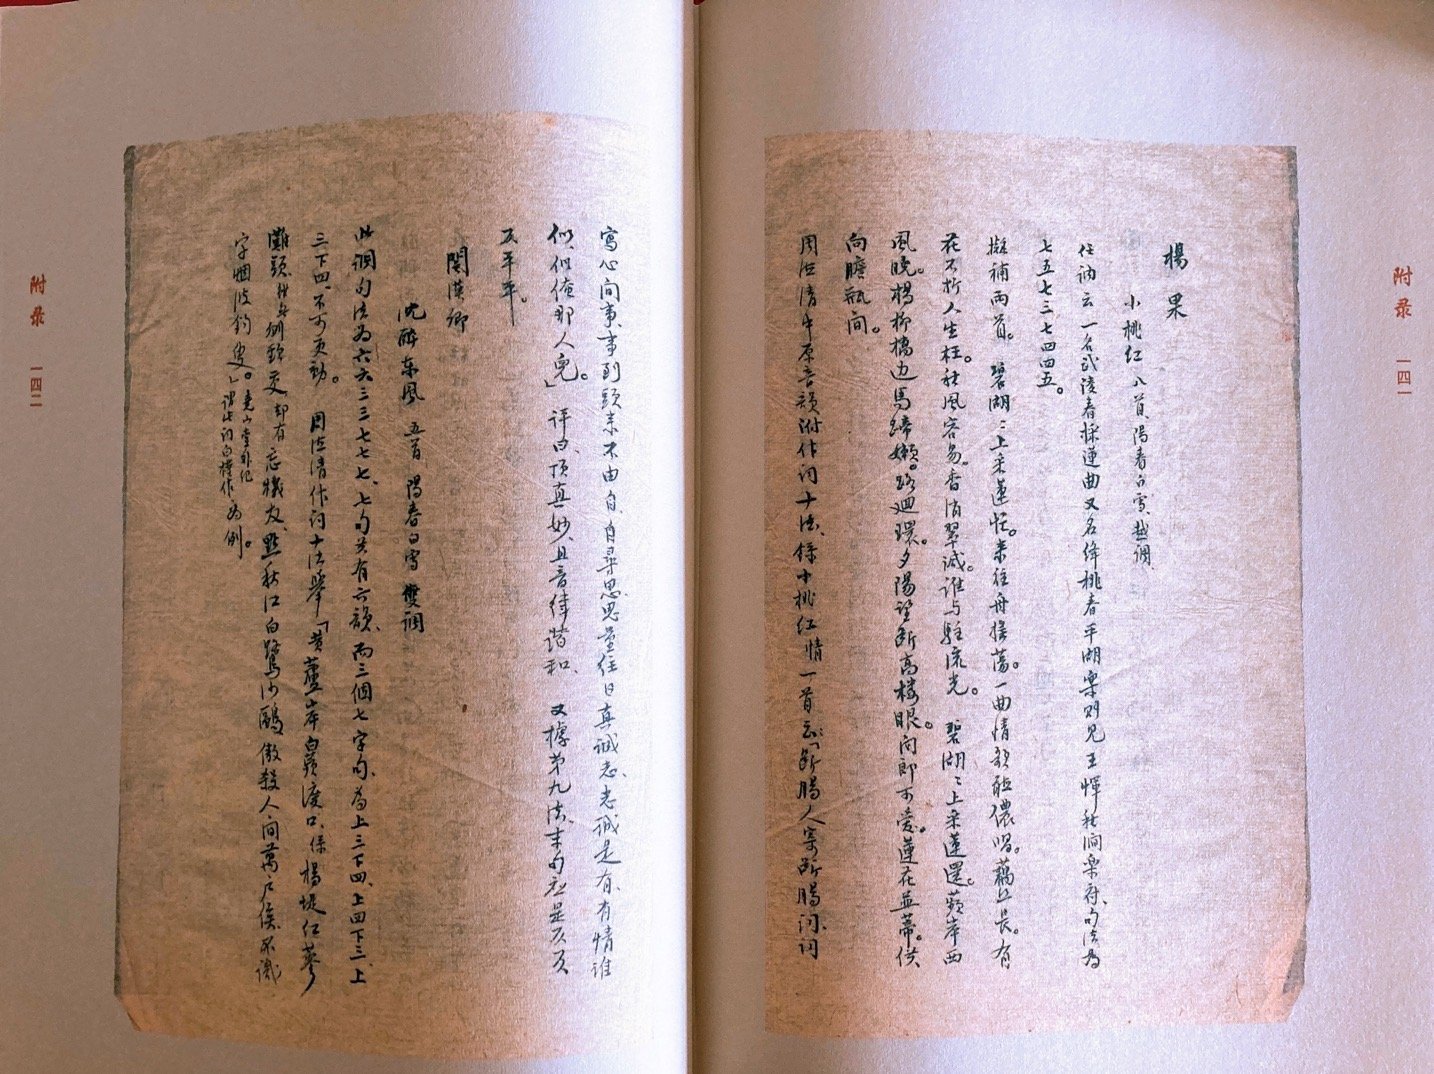 附录
一四一
楊果
小桃红 八首 陽春白雪 越調
任訥云 一名武陵春採蓮曲又名絳桃春平湖樂則見王惲秋澗樂府、句法為
七五七三七四四五。
擬補兩首。 碧湖湖上采蓮忙。来往舟搖蕩。一曲情歌聽儂唱。藕丝長。有
花不折人生枉。秋風容易。香消翠减。谁与駐流光。 碧湖湖上采蓮還。蘋岸西
風晚。楊柳橋边馬蹄嬾。路迴環。夕陽望断高樓眼。问郎可爱。蓮花並蒂。供
向膽瓶间。
周德清中原音韻附作词十法、録小桃红情一首云：「断腸人寄断腸词、词
寫心间事、事到頭来不由自、自尋思、思量往日真诚志、志诚是有、有情谁
似、似俺那人兒。」 评曰、顶真妙、且音律諧和、 又據第九法、末句应是仄仄
仄平平。
関漢卿
沈醉东風 五首 陽春白雪 雙調
此调句法为六六三三七七七、七句共有六韻、而三個七字句、为上三下四、上四下三、上
三下四、不可更动。 周德清作词十法舉「黄蘆岸白蘋渡口、绿楊堤红蓼
灘頭、雖無刎頸交、却有忘機友、點秋江白鷺沙鷗、傲殺人间萬户侯、不識
字烟波釣叟。」堯山堂外纪謂此词白樸作为例。
附录
一四二